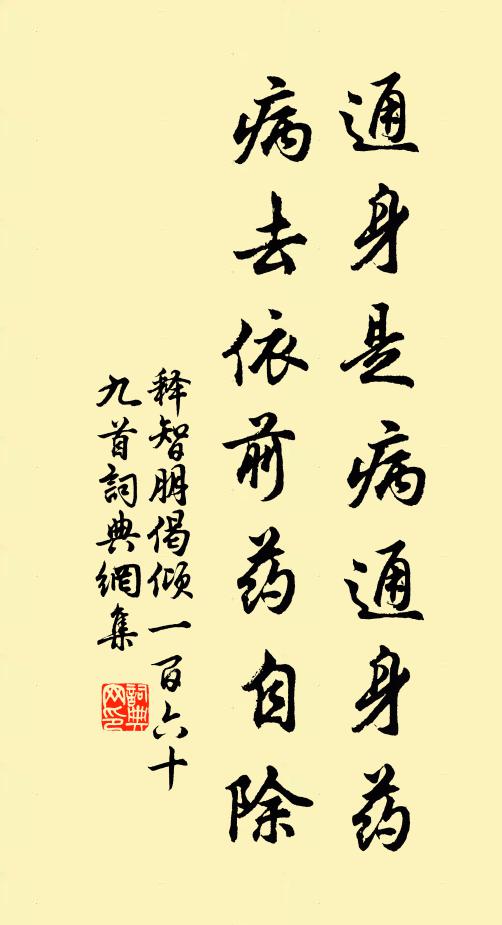 通身是病通身药
病去依前药自除
释智朋偈倾一百六十
九首詞典網集
詞典
网印